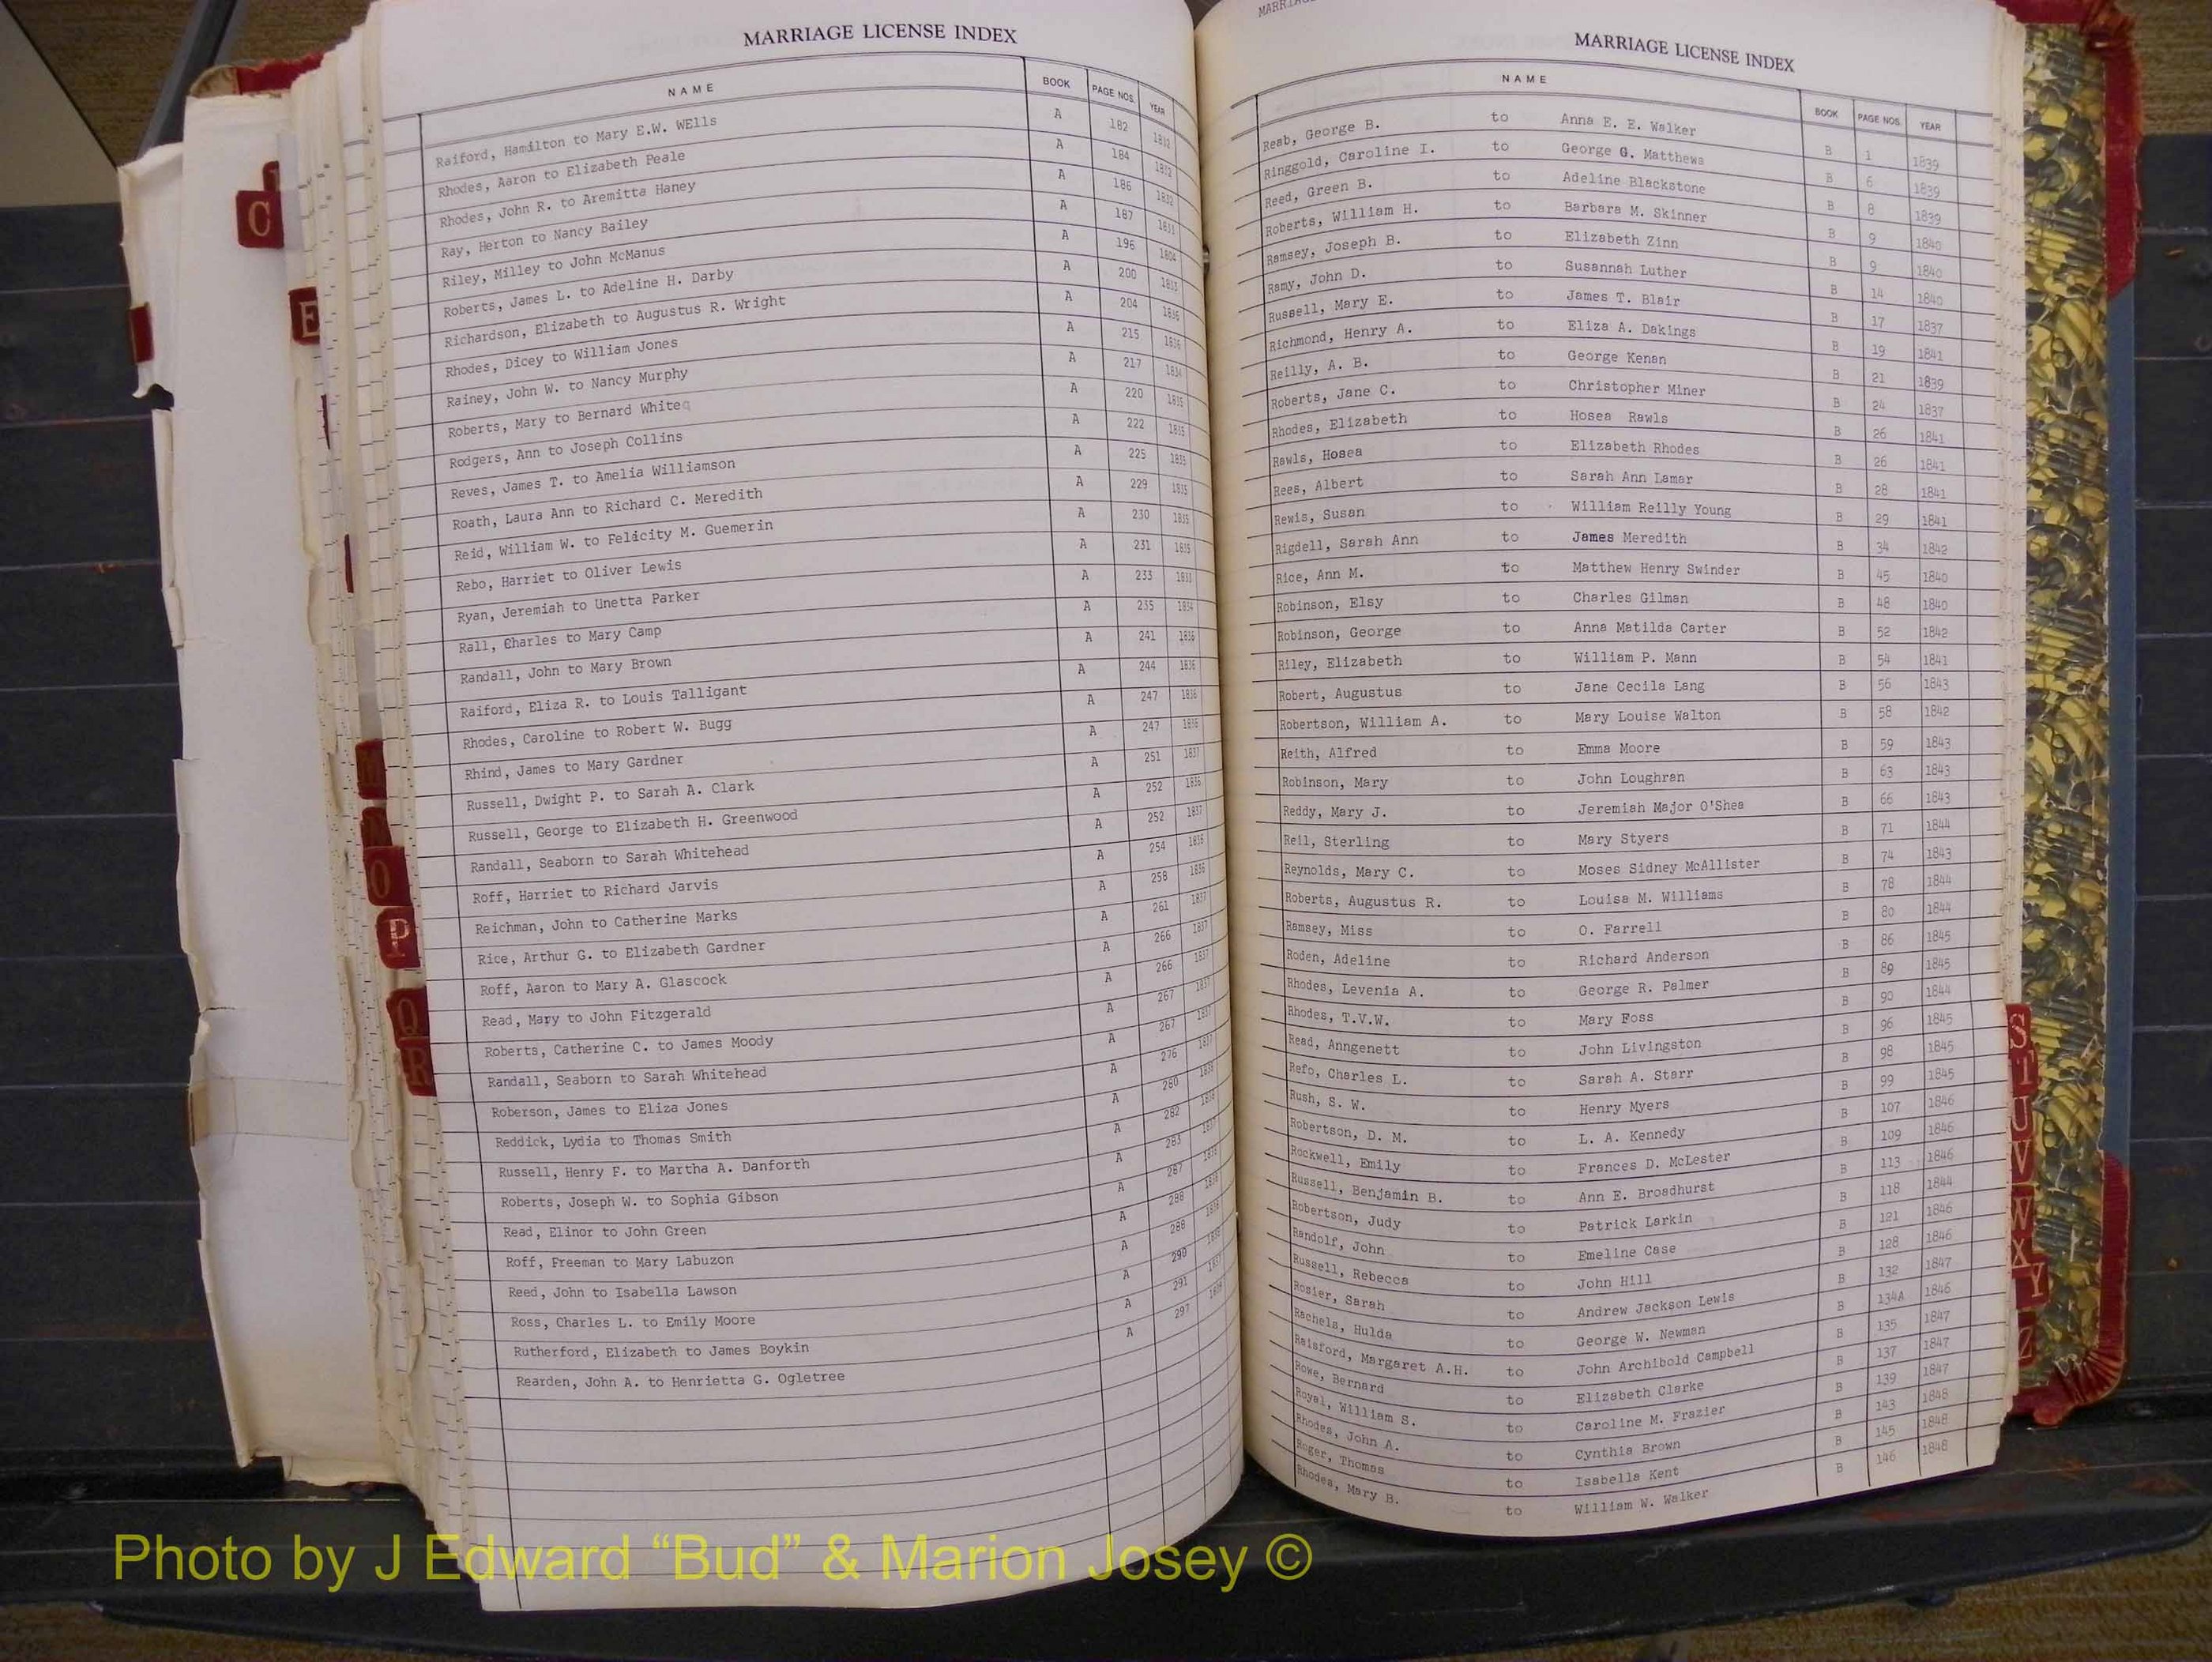 MARRIAGE LICENSE INDEX
NAME BOOK PAGE NOS. YEAR
Raiford, Hamilton to Mary E.W. WElls A 182 1832
Rhodes, Aaron to Elizabeth Peale A 184 1832
Rhodes, John R. to Aremitta Haney A 186 1832
Ray, Herton to Nancy Bailey A 187 1833
Riley, Milley to John McManus A 196
Roberts, James L. to Adeline H. Darby A 200 1833
Richardson, Elizabeth to Augustus R. Wright A 204 1836
Rhodes, Dicey to William Jones A 215 1836
Rainey, John W. to Nancy Murphy A 217 1834
Roberts, Mary to Bernard Whiteq A 220 1835
Rodgers, Ann to Joseph Collins A 222 1835
Reves, James T. to Amelia Williamson A 225 1835
Roath, Laura Ann to Richard C. Meredith A 229 1835
Reid, William W. to Felicity M. Guemerin A 230 1835
Rebo, Harriet to Oliver Lewis A 231 1835
Ryan, Jeremiah to Unetta Parker A 233 1833
Rall, Charles to Mary Camp A 235 1834
Randall, John to Mary Brown A 241 1836
Raiford, Eliza R. to Louis Talligant A 244 1836
Rhodes, Caroline to Robert W. Bugg A 247 1836
Rhind, James to Mary Gardner A 247 1836
Russell, Dwight P. to Sarah A. Clark A 251 1837
Russell, George to Elizabeth H. Greenwood A 252 1836
Randall, Seaborn to Sarah Whitehead A 252 1837
Roff, Harriet to Richard Jarvis A 254 1836
Reichman, John to Catherine Marks A 258 1836
Rice, Arthur G. to Elizabeth Gardner A 261 1837
Roff, Aaron to Mary A. Glascock A 266 1837
Read, Mary to John Fitzgerald A 266 1837
Roberts, Catherine C. to James Moody A 267 1837
Randall, Seaborn to Sarah Whitehead A 267 1837
Roberson, James to Eliza Jones A 276 1837
Reddick, Lydia to Thomas Smith A 280 1838
Russell, Henry F. to Martha A. Danforth A 282
Roberts, Joseph W. to Sophia Gibson A 283
Read, Elinor to John Green A 287
Roff, Freeman to Mary Labuzon A 288
Reed, John to Isabella Lawson A 288
Ross, Charles L. to Emily Moore A 290
Rutherford, Elizabeth to James Boykin A 291
Rearden, John A. to Henrietta G. Ogletree A 297
MARRIAGE LICENSE INDEX
NAME BOOK PAGE NOS. YEAR
Reab, George B. to Anna E. E. Walker B 1 1839
Ringgold, Caroline I. to George G. Matthews B 6 1839
Reed, Green B. to Adeline Blackstone B 8 1839
Roberts, William H. to Barbara M. Skinner B 9 1840
Ramsey, Joseph B. to Elizabeth Zinn B 9 1840
Ramy, John D. to Susannah Luther B 14 1840
Russell, Mary E. to James T. Blair B 17 1837
Richmond, Henry A. to Eliza A. Dakings B 19 1841
Reilly, A. B. to George Kenan B 21 1839
Roberts, Jane C. to Christopher Miner B 24 1837
Rhodes, Elizabeth to Hosea Rawls B 26 1841
Rawls, Hosea to Elizabeth Rhodes B 26 1841
Rees, Albert to Sarah Ann Lamar B 28 1841
Rewis, Susan to William Reilly Young B 29 1841
Rigdell, Sarah Ann to James Meredith B 34 1842
Rice, Ann M. to Matthew Henry Swinder B 45 1840
Robinson, Elsy to Charles Gilman B 48 1840
Robinson, George to Anna Matilda Carter B 52 1842
Riley, Elizabeth to William P. Mann B 54 1841
Robert, Augustus to Jane Cecila Lang B 56 1843
Robertson, William A. to Mary Louise Walton B 58 1842
Reith, Alfred to Emma Moore B 59 1843
Robinson, Mary to John Loughran B 63 1843
Reddy, Mary J. to Jeremiah Major O'Shea B 66 1843
Reil, Sterling to Mary Styers B 71 1844
Reynolds, Mary C. to Moses Sidney McAllister B 74 1843
Roberts, Augustus R. to Louisa M. Williams B 78 1844
Ramsey, Miss to O. Farrell B 80 1844
Roden, Adeline to Richard Anderson B 86 1845
Rhodes, Levenia A. to George R. Palmer B 89 1845
Rhodes, T.V.W. to Mary Foss B 90 1844
Read, Anngenett to John Livingston B 96 1845
Refo, Charles L. to Sarah A. Starr B 98 1845
Rush, S. W. to Henry Myers B 99 1845
Robertson, D. M. to L. A. Kennedy B 107 1846
Rockwell, Emily to Frances D. McLester B 109 1846
Russell, Benjamin B. to Ann E. Broadhurst B 113 1846
Robertson, Judy to Patrick Larkin B 118 1844
Randolf, John to Emeline Case B 121 1846
Russell, Rebecca to John Hill B 128 1846
Rosier, Sarah to Andrew Jackson Lewis B 132 1847
Rachels, Hulda to George W. Newman B 134A 1846
Raisford, Margaret A.H. to John Archibold Campbell B 135 1847
Rowe, Bernard to Elizabeth Clarke B 137 1847
Royal, William S. to Caroline M. Frazier B 139 1847
Rhodes, John A. to Cynthia Brown B 143 1848
Roger, Thomas to Isabella Kent B 145 1848
Rhodes, Mary B. to William W. Walker B 146 1848
C
E
O
P
Q
R
S
T
U
V
W
X
Y
Z
Photo by J Edward “Bud” & Marion Josey ©